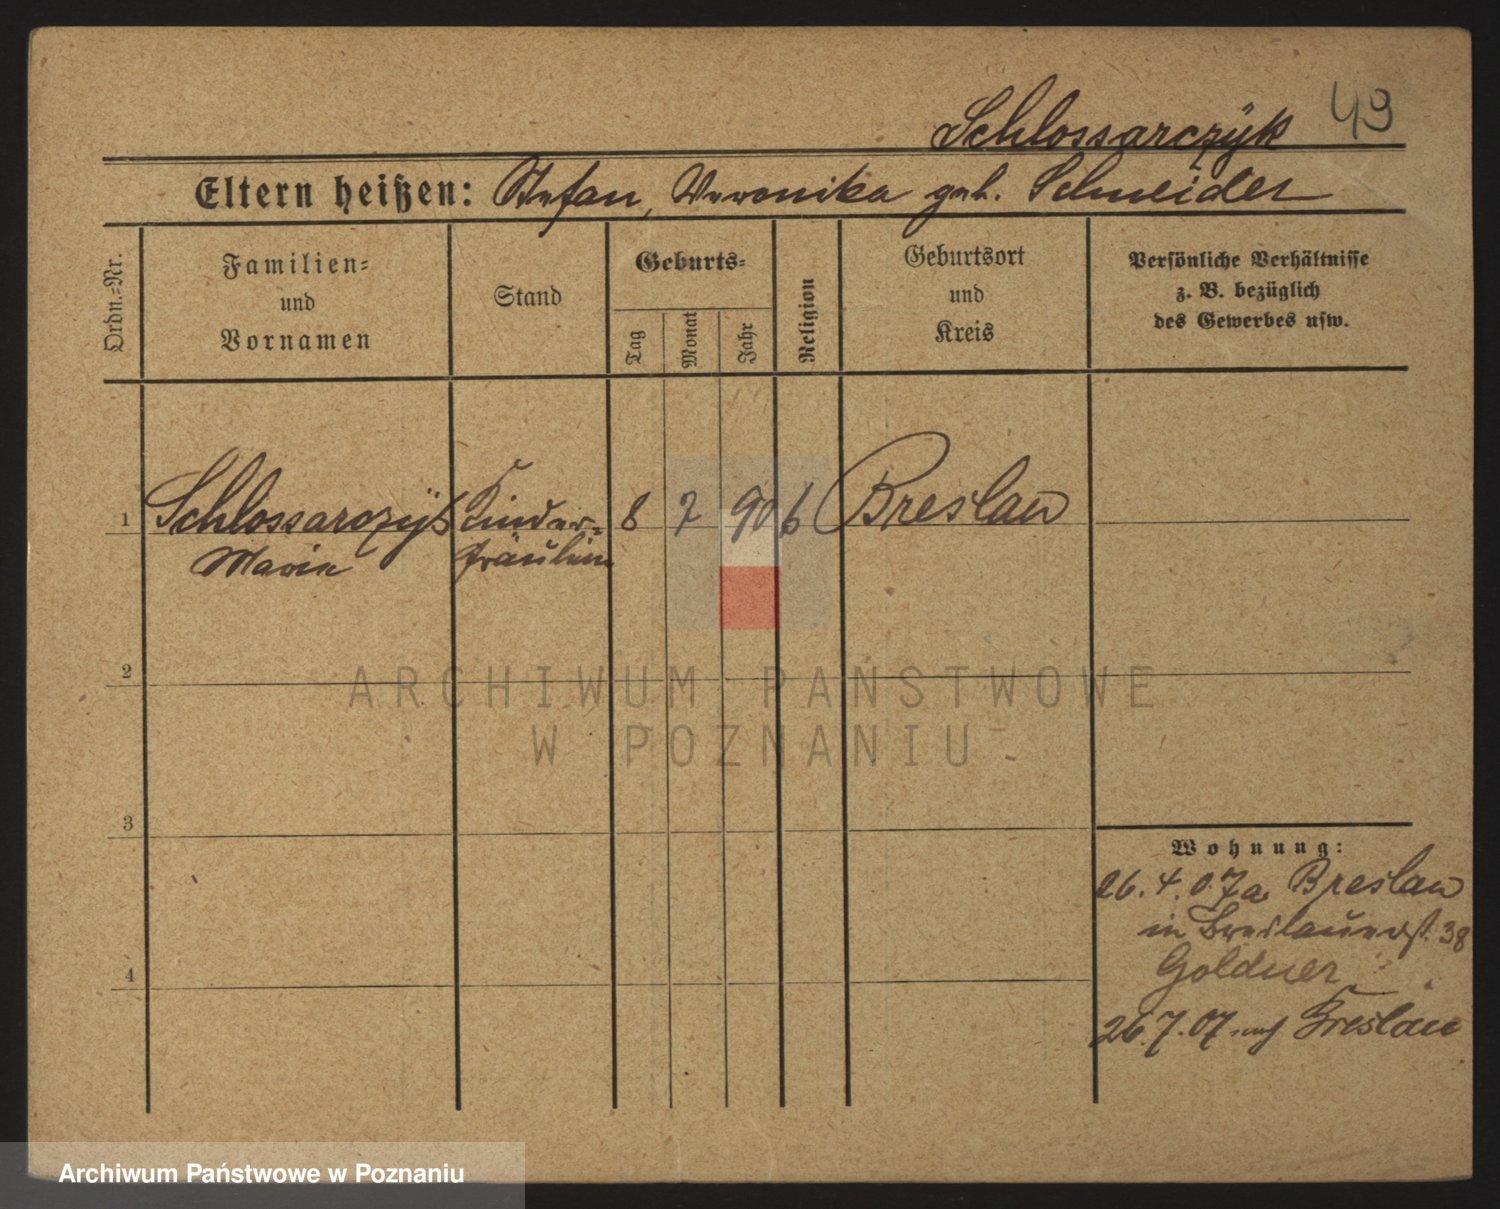 Schlossarczÿk 49
Eltern heißen: Stefan, Veronika geb. Schneider
Ordn.-Nr.
Familien-
und
Vornamen
Stand
Geburts-
Tag
Monat
Jahr
Religion
Geburtsort
und
Kreis
Persönliche Verhältnisse
z. B. bezüglich
des Gewerbes usw.
1 Schlossarczÿk Kinder- 8 7 90 Breslau
Marie fräulein
2
3
4
Wohnung:
26.4.07 a Breslau
in Breslauerst. 38
Goldner
26.7.07 nach Breslau
ARCHIWUM PAŃSTWOWE
W POZNANIU
Archiwum Państwowe w Poznaniu